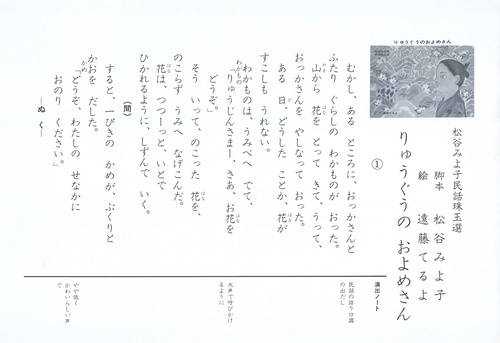 りゅうぐうのおよめさん
松谷みよ子民話珠玉選
脚本　松谷みよ子
絵　遠藤てるよ
りゅうぐうの およめさん
①
むかし、ある ところに、おっかさんと
ふたり ぐらしの わかものが おった。
山から 花を とって きて、うって、
おっかさんを やしなって おった。
ある 日、どうした ことか、花が
すこしも うれない。
わかものは、うみべへ でて、
「りゅうじんさまー、さあ、お花を
どうぞ。」
そう いって、のこった 花を、
のこらず うみへ なげこんだ。
花は、つつーっと、いとで
ひかれるように、しずんで いく。
（間）
すると、一ぴきの かめが、ぷくりと
かおを だした。
「どうぞ、わたしの せなかに
おのり ください。」
―ぬ く―
演出ノート
民話の語り口調
の出だし
大声で呼びかけ
るように
やや低く
かわいらしい声
で